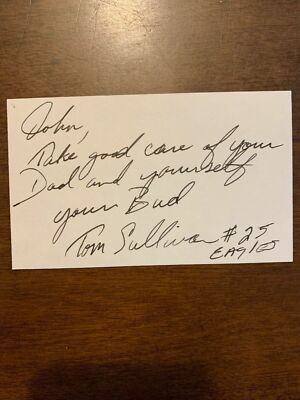 John,
Take good care of your
Dad and yourself
your Bud
Tom Sullivan #25
EAGLES